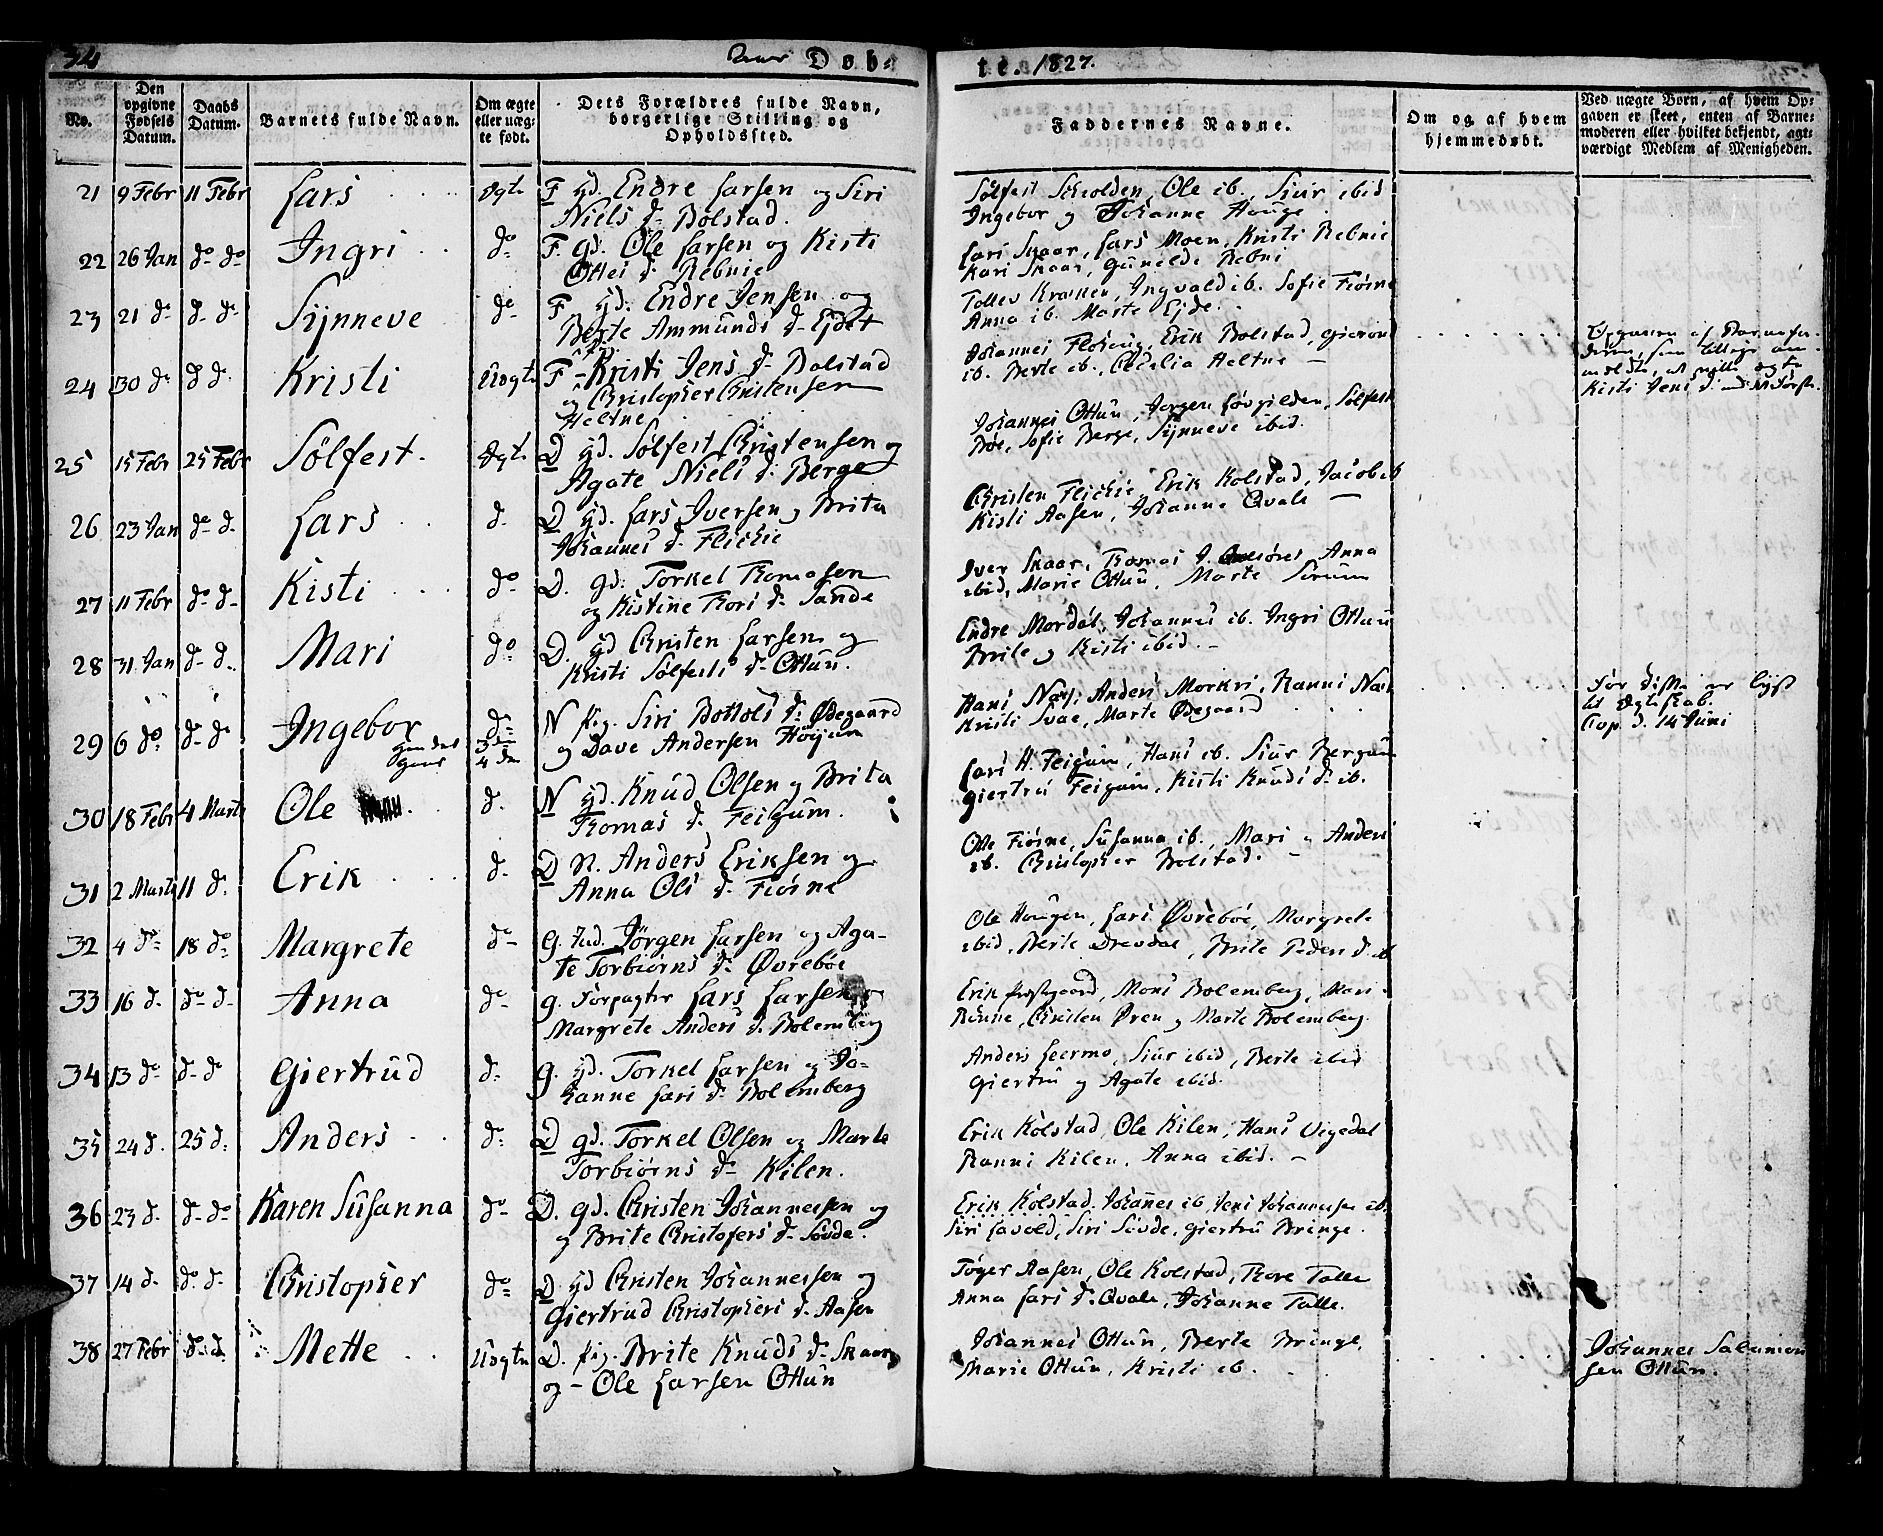 34
Døb-
te. 1827.
No.
Den opgivne Fødsels Datum.
Daabs Datum.
Barnets fulde Navn.
Om ægte eller uægte født.
Dets Forældres fulde Navn, borgerlige Stilling og Opholdssted.
Faddernes Navne.
Om og af hvem hjemmedøbt.
Ved uægte Børn, af hvem Opgaven er skeet, enten af Barnemoderen eller hvilket bekjendt, agtværdigt Medlem af Menigheden.
21 9 Febr 11 Febr Lars Ægt. F gd. Endre Larsen og Siri
Niels d. Bolstad.
Sølfest Skiolden, Ole ib., Siur ibid
Ingebor og Johanne Houge
22 26 Jan do do Ingri do F. gd. Ole Larsen og Kisti
Ottes d. Rebnie
Lars Skaar, Lars Moen, Kristi Rebnie
Kari Skaar, Gunelde Rebni
23 21 do do do Synneve do F gd. Endre Jensen og
Berte Ammunds d. Ejdet
Tollev Kroken, Ingvald ib. Sofie Fiørne
Anna ib. Marte Ejde.
24 30 do d d. Kristi Uægte F - Kristi Jens d. Bolstad
og Christopher Christensen
Heltne
Johannes, Erik Bolstad,
ib. Berte ib., Cecilia Heltne
Kisti Jens d.
25 15 Febr 25 Febr Sølfest. Ægt. D gd. Sølfest Christensen og
Agate Niels d. Berge
Johannes Ottun, Jørgen, Sølfest
Bøe, Sofie Berge, Synneve ibid.
26 23 Jan do d. Lars d. D gd. Lars Iversen og Brita
Johannes d. Flickie
Christen Flickie, Erik Kolstad, Jacob ib
Kisti Aasen, Johanne Qvale
27 11 Febr do d. Kisti do D. gd. Torkel Thomasen
og Kistine Thors d. Sande
Iver Skaar, Thomas, Anna
ibid, Marie Ottun, Marte
28 31 Jan d. d. Mari do D. gd Christen Larsen og
Kristi Sølfests d. Ottun.
Endre Mordal, Johannes ib. Ingri Ottun
Brite og Kisti ibid.
29 6 do d. do Ingebor do N pig. Siri Bottols d. Ødegaard
og Dave Andersen Høyum
Hans Næs, Anders Morkri, Ranni Næs
Kristi Svae, Marte Ødegaard
til Ægteskab.
Cop. d. 14 Juni
30 18 Febr 4 Marts Ole d. N gd. Knud Olsen og Brita
Thomas d. Feigum.
Lars H. Feigum, Hans ib. Siur Bergum
Giertru Feigum, Kisti Knuds d. ib.
31 2 Marts 11 d. Erik d. D N. Anders Eriksen og
Anna Ols d. Fiørne
Ole Fiørne, Susanna ib., Mari og Anders
ib. Christopher Bolstad.
32 4 do 18 do Margrete do G. Jørgen Larsen og Aga-
te Torbiørns d. Øvrebøe
Ole Hougen, Lars Øvrebøe, Margrete
ibid, Berte Drevdal, Brite Peders d. ib
33 16 d. do d. Anna do G. Forpagter Lars Larsen og
Margrete Anders d. Bolemberg
Erik Prestgaard, Mons Bolemberg, Mari
Rønne, Christen Øren og Marte Bolemberg
34 13 do d. do Giertrud d. G. gd. Torkel Larsen og Jo-
hanne Lars d. Bolemberg
Anders Leermo, Siur ibid, Berte ibid
Giertru og Agate ibid.
35 24 d. 25 d. Anders do D gd. Torkel Olsen og Marte
Torbiørns d. Kilen.
Erik Kolstad, Ole Kilen, Hans Vigedal
Ranni Kilen, Anna ibid.
36 23 d. d. do Karen Susanna do D. gd. Christen Johannessen og
og Brite Christofers d. Søvde.
Erik Kolstad, Johannes ib Jens Johannessen ib.
Siri Lavold, Siri Søvde, Giertru Bringe.
37 14 d. do d. Christopher do D gd Christen Johannessen og
Giertrud Christophers d. Aasen
Tøger Aasen, Ole Kolstad, Thore Talle
Anna Lars d. Qvale, Johanne Talle.
38 27 Febr d. d. Mette Uægte D. pig. Brite Knuds d. Skaar
og - Ole Larsen Ottun
Johannes Ottun, Berte Bringe,
Marie Ottun, Kristi ib.
Johannes Salamon
sen Ottun.